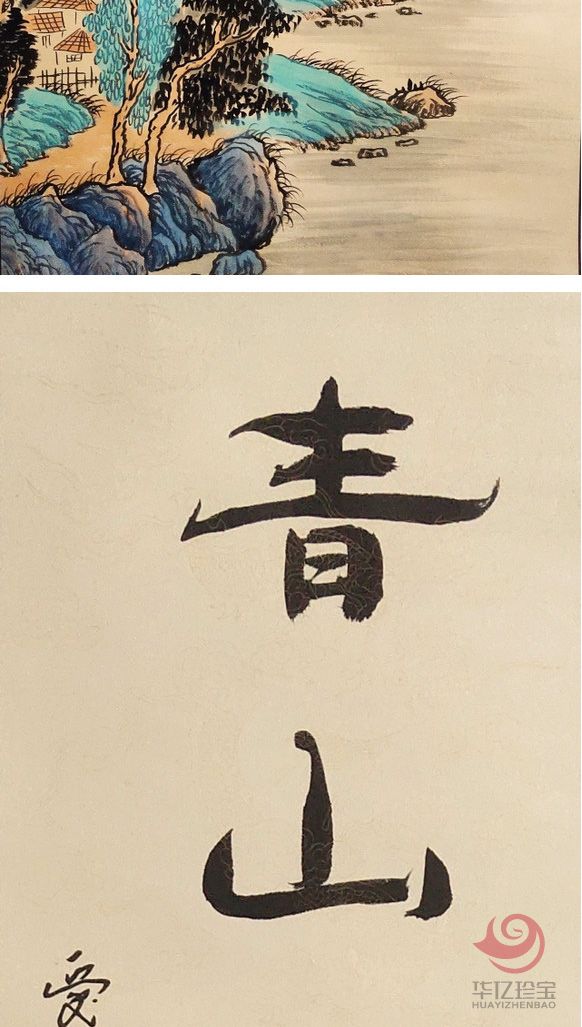 青
山
华亿珍宝
HUAYIZHENBAO